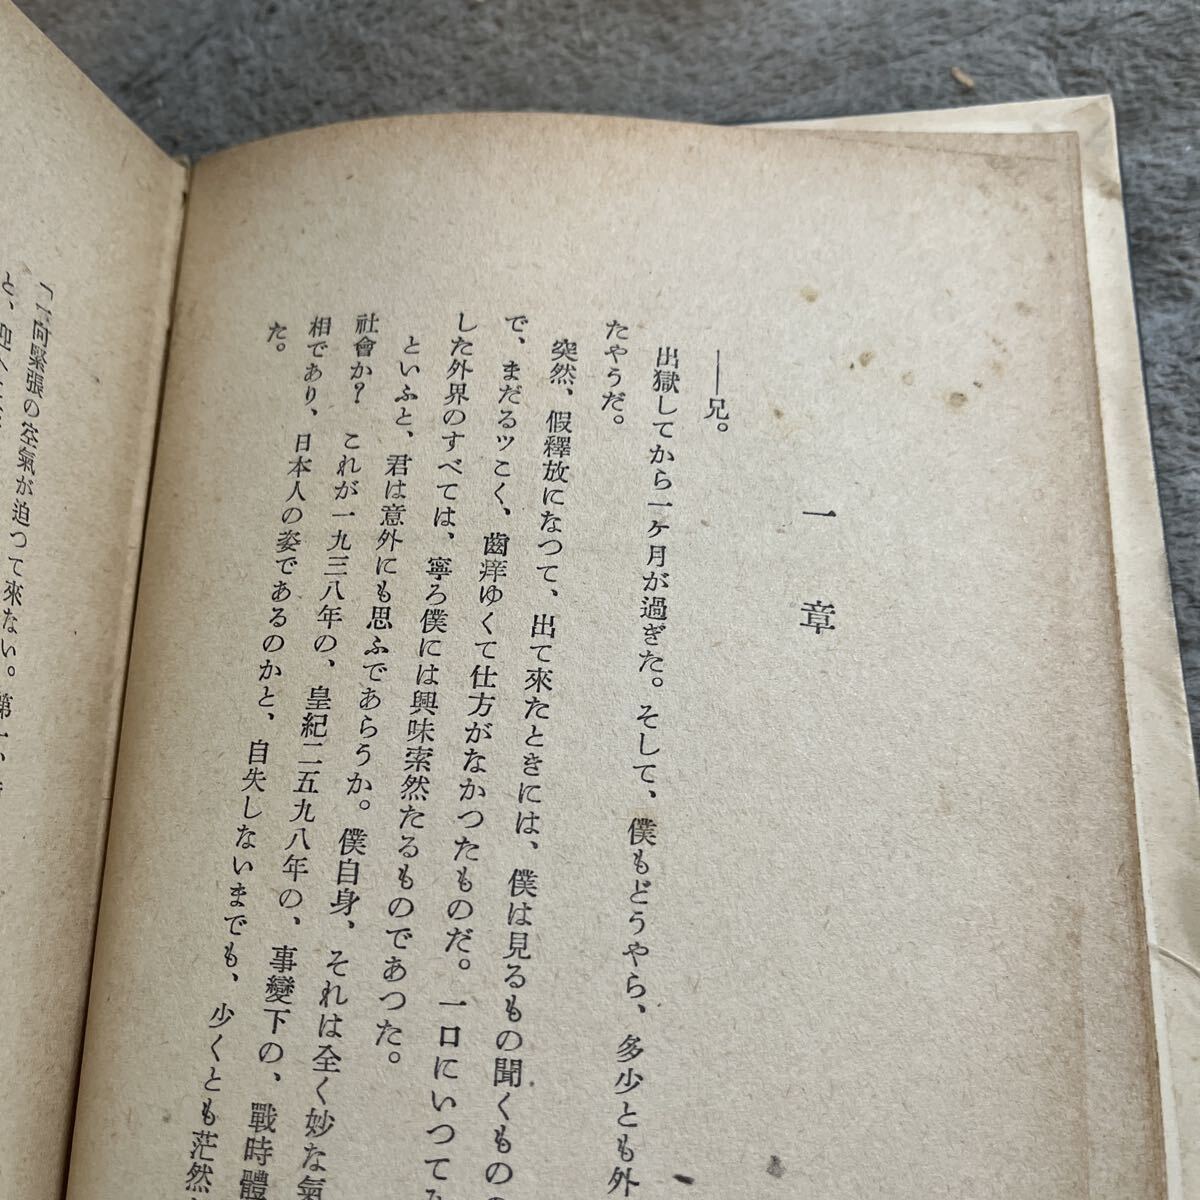 一章
――兄。
出獄してから一ヶ月が過ぎた。そして、僕もどうやら、多少とも外
たやうだ。
突然、假釋放になつて、出て來たときには、僕は見るもの聞くものの
で、まだるツこく、齒痒ゆくて仕方がなかつたものだ。一口にいつて
した外界のすべては、寧ろ僕には興味索然たるものであつた。
といふと、君は意外にも思ふであらうか。僕自身、それは全く妙な氣
社會か？　これが一九三八年の、皇紀二五九八年の、事變下の、戰時體
相であり、日本人の姿であるのかと、自失しないまでも、少くとも茫然
た。
「一向緊張の空氣が迫つて來ない。第一、
と、